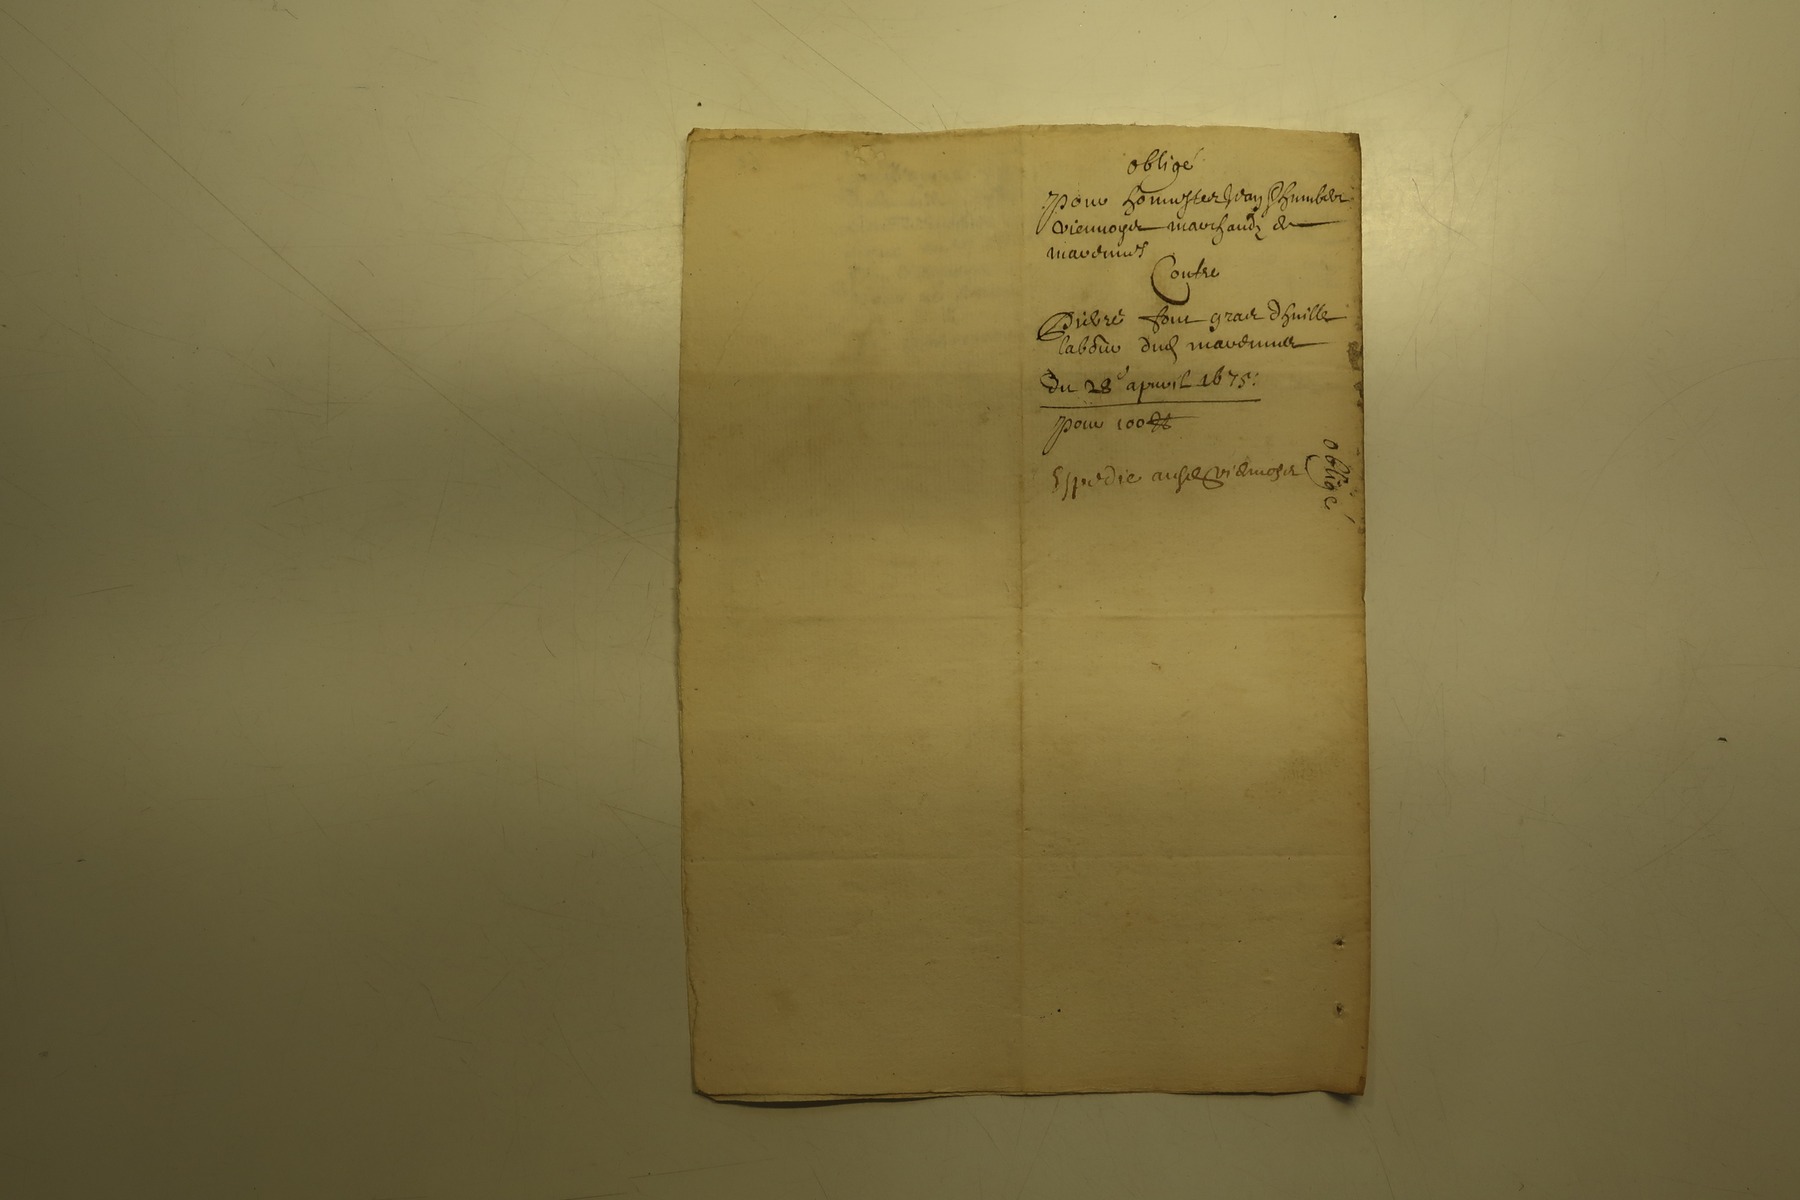 obligé
Pour honneste Jean Humbert
viennoys marchand de
marennes
Contre
Pierre four grade d'huille
labour dud marennes
Du 28e apvril 1675:
pour 100 ₶
Expedie aud viennoys
obligé